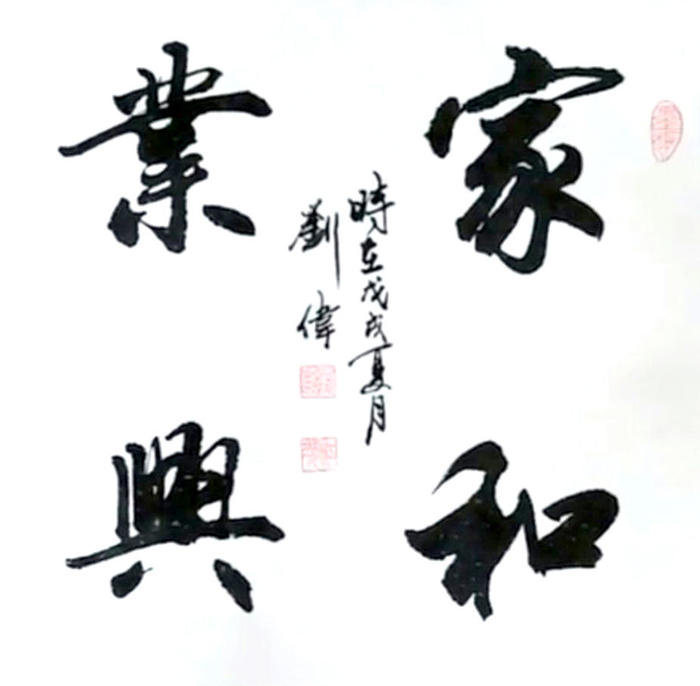 家和
業興
時在戊戌夏月
劉偉